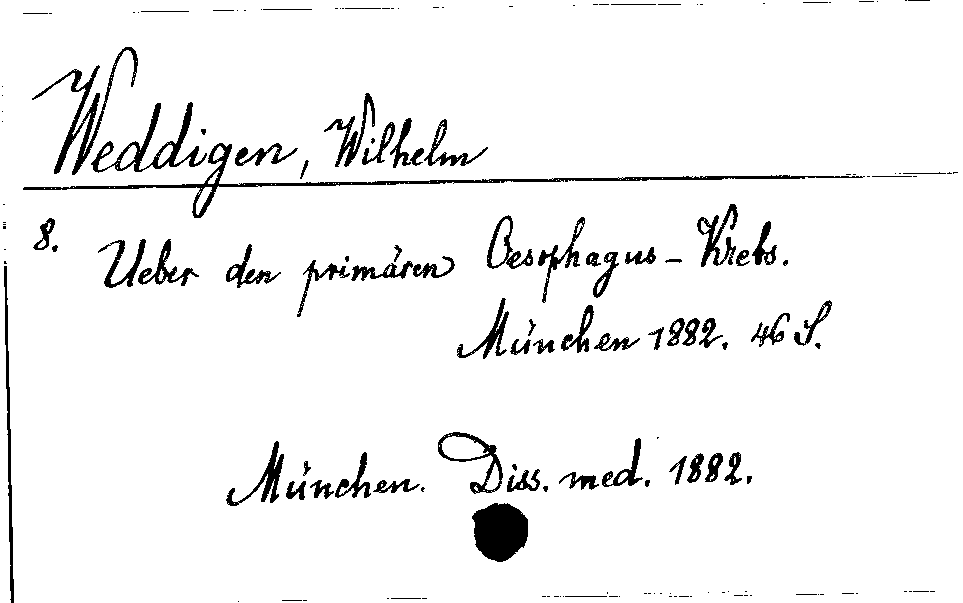 Weddigen, Wilhelm
8. Ueber den primären Oesophagus-Krebs.
München 1882. 46 S.
München. Diss. med. 1882.